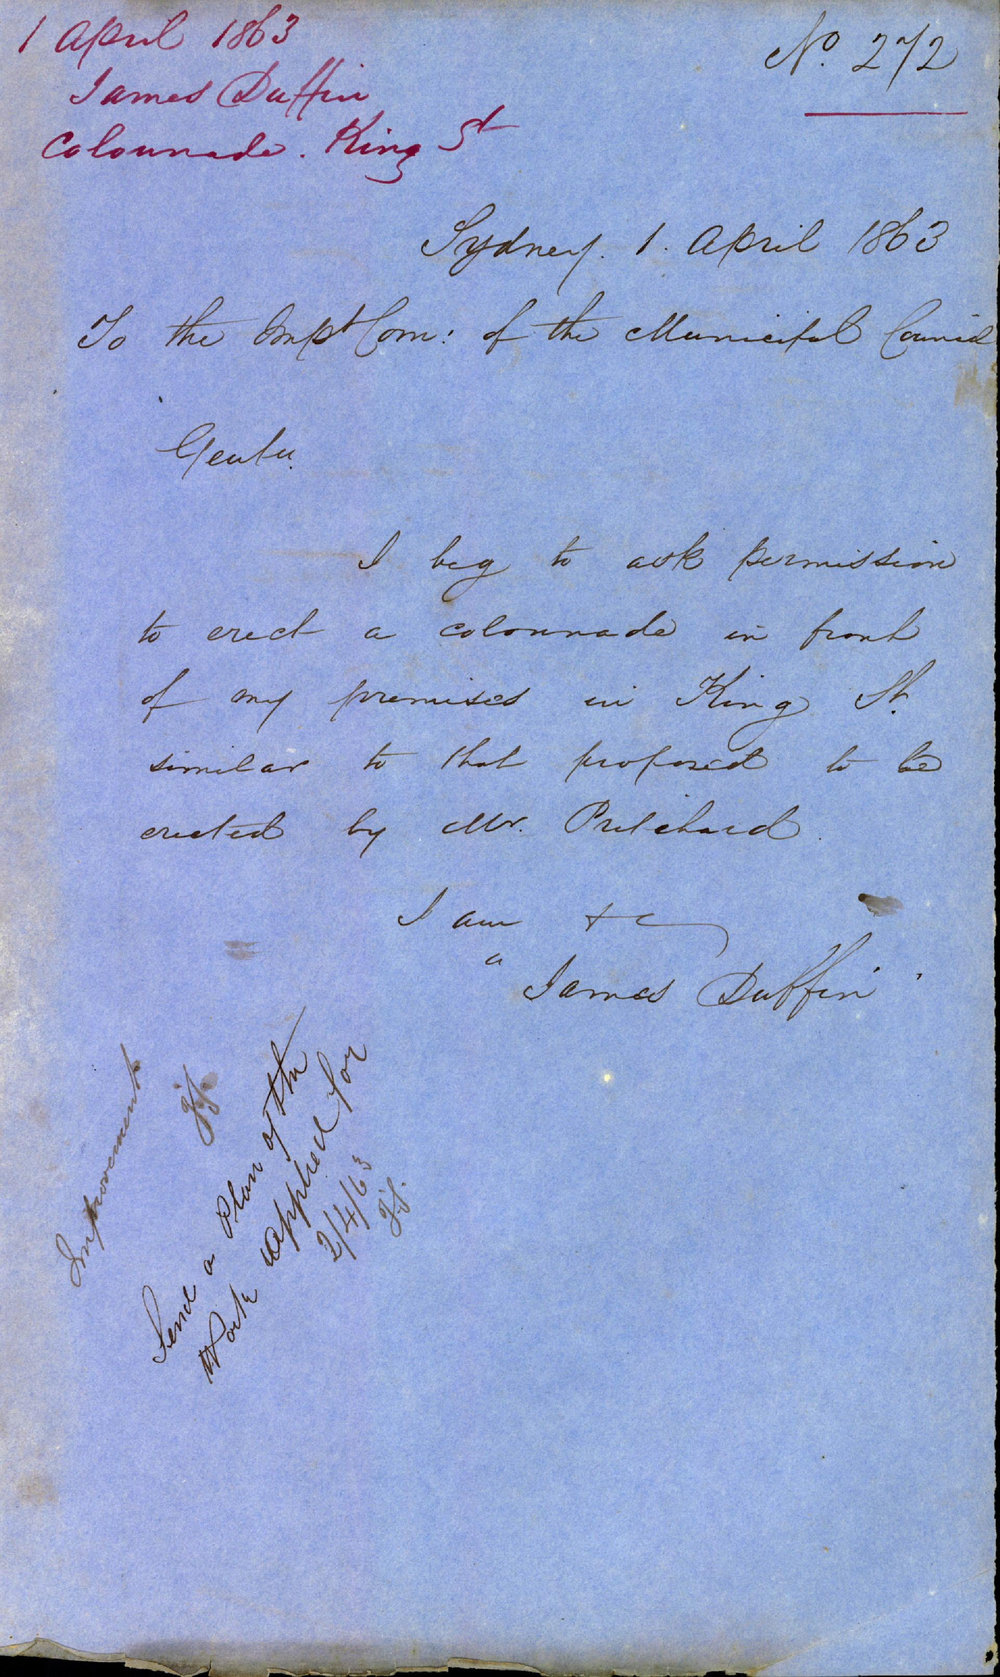 1 April 1863
James Duffin
Colonnade. King St
No. 272
Sydney. 1. April 1863
To the Impt Com: of the Municipal Council
Gentn.
I beg to ask permission
to erect a colonnade in front
of my premises in King St.
similar to that proposed to be
erected by Mr. Pritchard.
I am &c
"James Duffin"
Improvement
Send a Plan of the
Work applied for
2/4/63